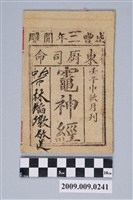 咸豐三年開雕
壬子中秋月刊
東廚司命
竈神經
林
敬送
2009.009.0241